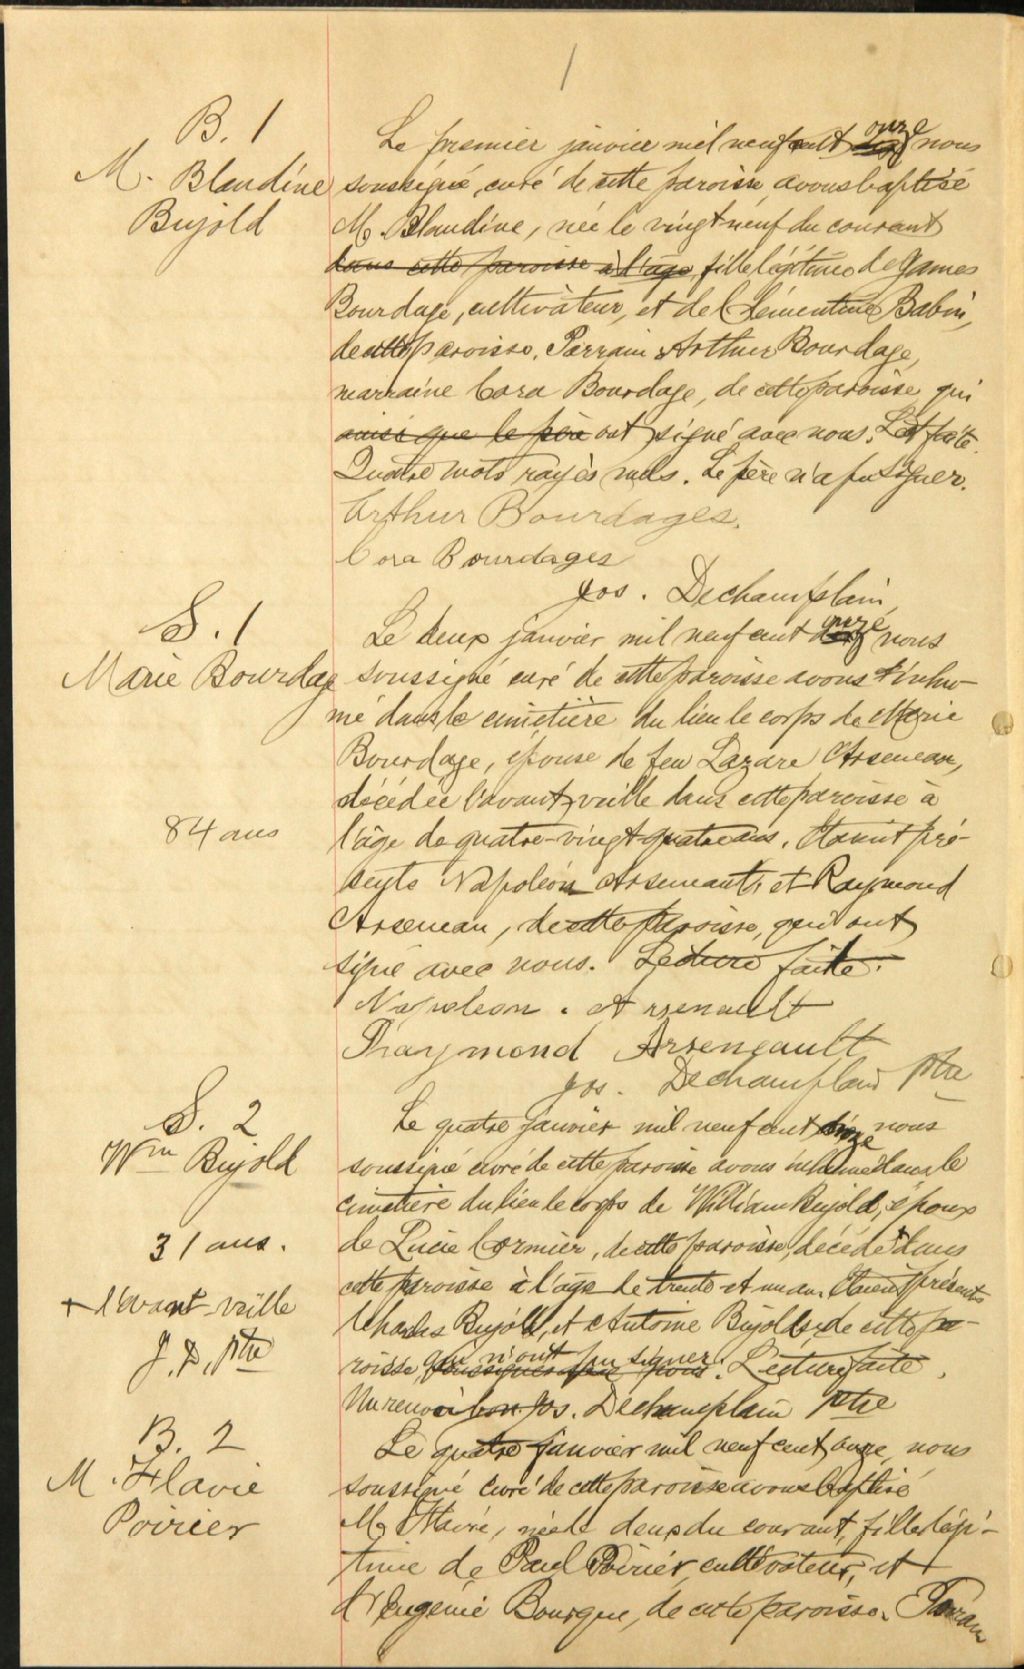 1
B. 1
M. Blandine
Bujold
Le premier janvier mil neuf cent onze nous
soussigné, curé de cette paroisse, avons baptisé
M. Blandine, née le vingt neuf du courant
dans cette paroisse à l'âge, fille légitime de James
Bourdage, cultivateur, et de Clémentine Babin,
de cette paroisse. Parrain Arthur Bourdage,
marraine Cora Bourdage, de cette paroisse qui
ainsi que le père ont signé avec nous. Lect faite.
Quatre mots rayés nuls. Le père n'a pu signer.
Arthur Bourdages.
Cora Bourdages
Jos. Dechamplain,
S. 1
Marie Bourdage
84 ans
Le deux janvier mil neuf cent onze nous
soussigné curé de cette paroisse avons inhu-
mé dans le cimetière du lieu le corps de Marie
Bourdage, épouse de feu Lazare Arseneau,
décédée l'avant veille dans cette paroisse à
l'âge de quatre-vingt-quatre ans. Etaient pré-
sents Napoléon Arsenault et Raymond
Arseneau, de cette paroisse, qui ont
signé avec nous. Lecture faite.
Napoleon. Arsenault
Raymond Arseneault
Jos. Dechamplain ptre
S. 2
Wm Bujold
31 ans.
+ l'avant-veille
J. D. ptre
Le quatre janvier mil neuf cent onze nous
soussigné curé de cette paroisse avons inhumé dans le
cimetière du lieu le corps de William Bujold, époux
de Lucie Cormier, de cette paroisse, décédé + dans
cette paroisse à l'âge de trente et un an. Etaient présents
Charles Bujold, et Antoine Bujold, de cette pa-
roisse, qui n'ont pu signer. Lecture faite.
Un renvoi bon. Jos. Dechamplain ptre
B. 2
M. Flavie
Poirier
Le quatre janvier mil neuf cent onze, nous
soussigné curé de cette paroisse avons baptisé
M. Flavie, née le deux du courant, fille légi-
time de Paul Poirier, cultivateur, et
d'Eugenie Bourque, de cette paroisse. Parrain